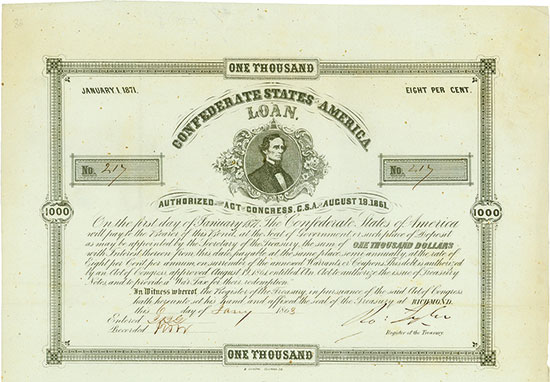 ONE THOUSAND
JANUARY 1, 1871.
EIGHT PER CENT.
CONFEDERATE STATES AMERICA
LOAN.
No. 217
No. 217
AUTHORIZED ACT CONGRESS, C.S.A. AUGUST 19, 1861.
1000
1000
On the first day of January 1871, The Confederate States of America
will pay to the Bearer of this Bond, at the seat of Government, or such place of Deposit
as may be appointed by the Secretary of the Treasury, the sum of ONE THOUSAND DOLLARS
with Interest thereon from this date, payable at the same place, semi annually, at the rate of
Eight per Cent. per annum, on surrender of the annexed Warrants or Coupons. This debt is authorized
By an Act of Congress approved August 19, 1861, entitled An Act to authorize the issue of Treasury
Notes, and to provide a War Tax for their redemption.
In Witness whereof, the Register of the Treasury, in pursuance of the said Act of Congress
hath hereunto set his hand and affixed the seal of the Treasury at RICHMOND,
this day of 1863
Entered
Recorded
Ro: Tyler
Register of the Treasury.
ONE THOUSAND